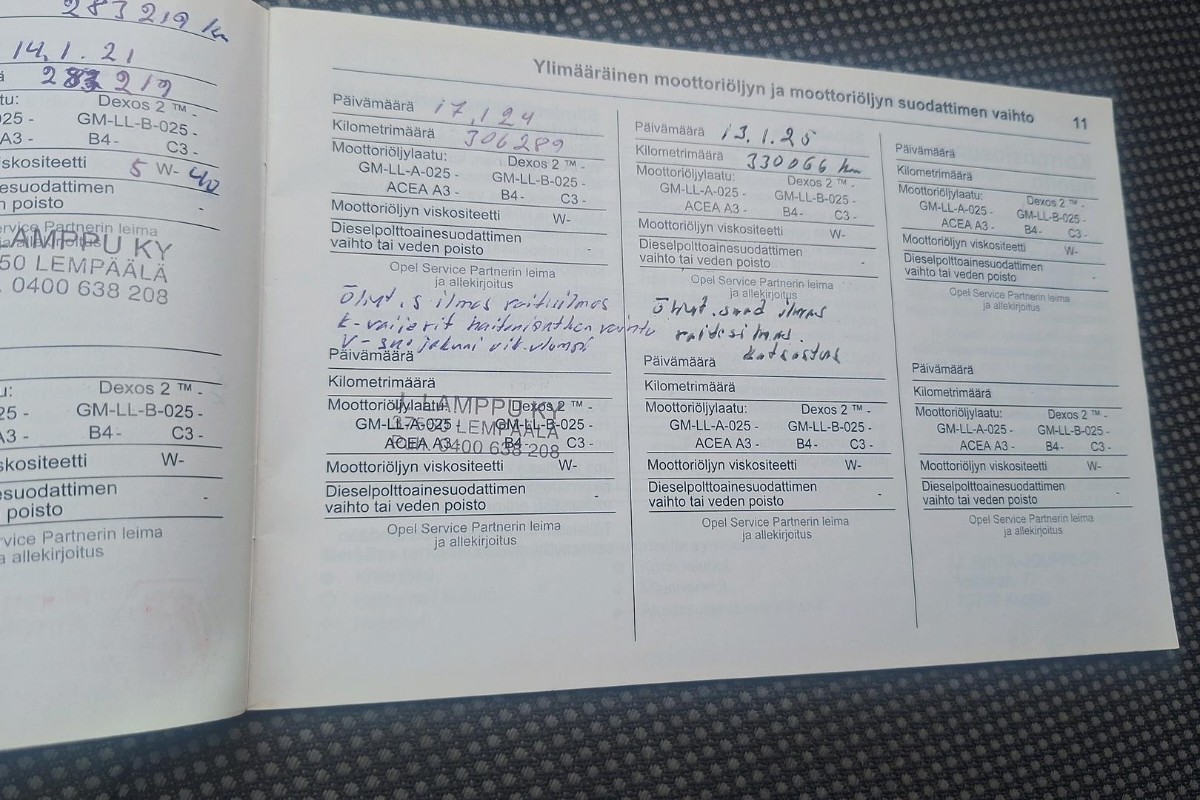 283219 km
14.1.21
283 219
tu:
Dexos 2 ™ -
025 -
GM-LL-B-025 -
A3 -
B4-
C3 -
iskositeetti
5 W- 40
esuodattimen
n poisto
-
ervice Partnerin leima
ja allekirjoitus
LAMPPU KY
50 LEMPÄÄLÄ
0400 638 208
u:
Dexos 2 ™ -
25 -
GM-LL-B-025 -
A3 -
B4-
C3 -
skositeetti
W-
esuodattimen
poisto
-
rvice Partnerin leima
a allekirjoitus
Ylimääräinen moottoriöljyn ja moottoriöljyn suodattimen vaihto
11
Päivämäärä 17.1.24
Kilometrimäärä 306289
Moottoriöljylaatu:
Dexos 2 ™ -
GM-LL-A-025 -
GM-LL-B-025 -
ACEA A3 -
B4-
C3 -
Moottoriöljyn viskositeetti
W-
Dieselpolttoainesuodattimen
vaihto tai veden poisto
-
Opel Service Partnerin leima
ja allekirjoitus
ilmas raitisilmas
vaihto
Päivämäärä
Kilometrimäärä
Moottoriöljylaatu:
Dexos 2 ™ -
GM-LL-A-025 -
GM-LL-B-025 -
ACEA A3 -
B4-
C3 -
LAMPPU KY
LEMPÄÄLÄ
0400 638 208
Moottoriöljyn viskositeetti
W-
Dieselpolttoainesuodattimen
vaihto tai veden poisto
-
Opel Service Partnerin leima
ja allekirjoitus
Päivämäärä 13.1.25
Kilometrimäärä 330066 km
Moottoriöljylaatu:
Dexos 2 ™ -
GM-LL-A-025 -
GM-LL-B-025 -
ACEA A3 -
B4-
C3 -
Moottoriöljyn viskositeetti
W-
Dieselpolttoainesuodattimen
vaihto tai veden poisto
-
Opel Service Partnerin leima
ja allekirjoitus
suod ilmas
raitisilmas.
katsastus
Päivämäärä
Kilometrimäärä
Moottoriöljylaatu:
Dexos 2 ™ -
GM-LL-A-025 -
GM-LL-B-025 -
ACEA A3 -
B4-
C3 -
Moottoriöljyn viskositeetti
W-
Dieselpolttoainesuodattimen
vaihto tai veden poisto
-
Opel Service Partnerin leima
ja allekirjoitus
Päivämäärä
Kilometrimäärä
Moottoriöljylaatu:
Dexos 2 ™ -
GM-LL-A-025 -
GM-LL-B-025 -
ACEA A3 -
B4-
C3 -
Moottoriöljyn viskositeetti
W-
Dieselpolttoainesuodattimen
vaihto tai veden poisto
-
Opel Service Partnerin leima
ja allekirjoitus
Päivämäärä
Kilometrimäärä
Moottoriöljylaatu:
Dexos 2 ™ -
GM-LL-A-025 -
GM-LL-B-025 -
ACEA A3 -
B4-
C3 -
Moottoriöljyn viskositeetti
W-
Dieselpolttoainesuodattimen
vaihto tai veden poisto
-
Opel Service Partnerin leima
ja allekirjoitus